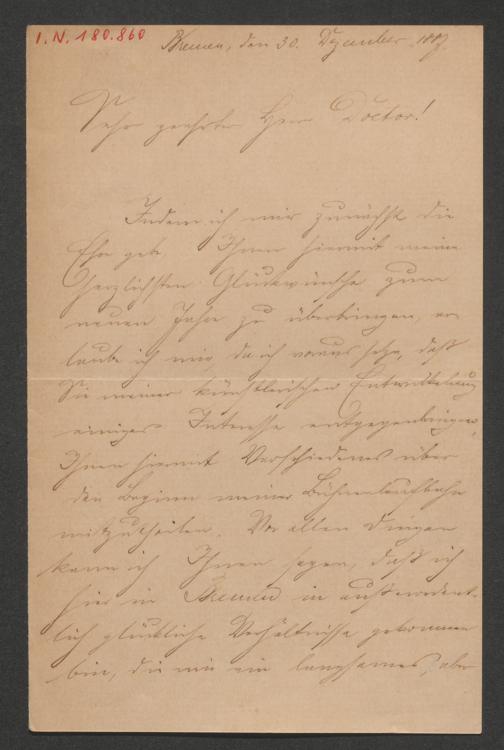 I. N. 180.860
Bremen, den 30. Dezember 1887.
Sehr geehrter Herr Doctor!
Indem ich mir zunächst die
Ehre gebe, Ihnen hiermit meine
herzlichsten Glückwünsche zum
neuen Jahre zu überbringen, er-
laube ich mir, da ich voraus setze, daß
Sie meiner künstlerischen Entwickelung
einiges Interesse entgegenbringen,
Ihnen hiermit Verschiedenes über
den Beginn meiner Bühnenlaufbahn
mitzutheilen. Vor allen Dingen
kann ich Ihnen sagen, daß ich
hier in Bremen in außerordent-
lich glückliche Verhältnisse gekommen
bin, die mir ein langsames, aber